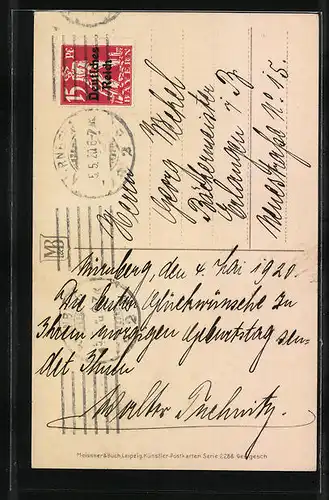 15 Pf
Deutsches
Reich
BAYERN
5.5.20.6-7
Herrn
Georg Wehel
Bäckermeister
Erlangen i/B
Neuestraße No 15.
MB
Nürnberg, den 4. Mai 1920.
Die besten Glückwünsche zu
Ihrem morgigen Geburtstag sen-
det Ihnen
Walter
Meissner & Buch, Leipzig, Künstler-Postkarten Serie 2286 Ges. gesch.